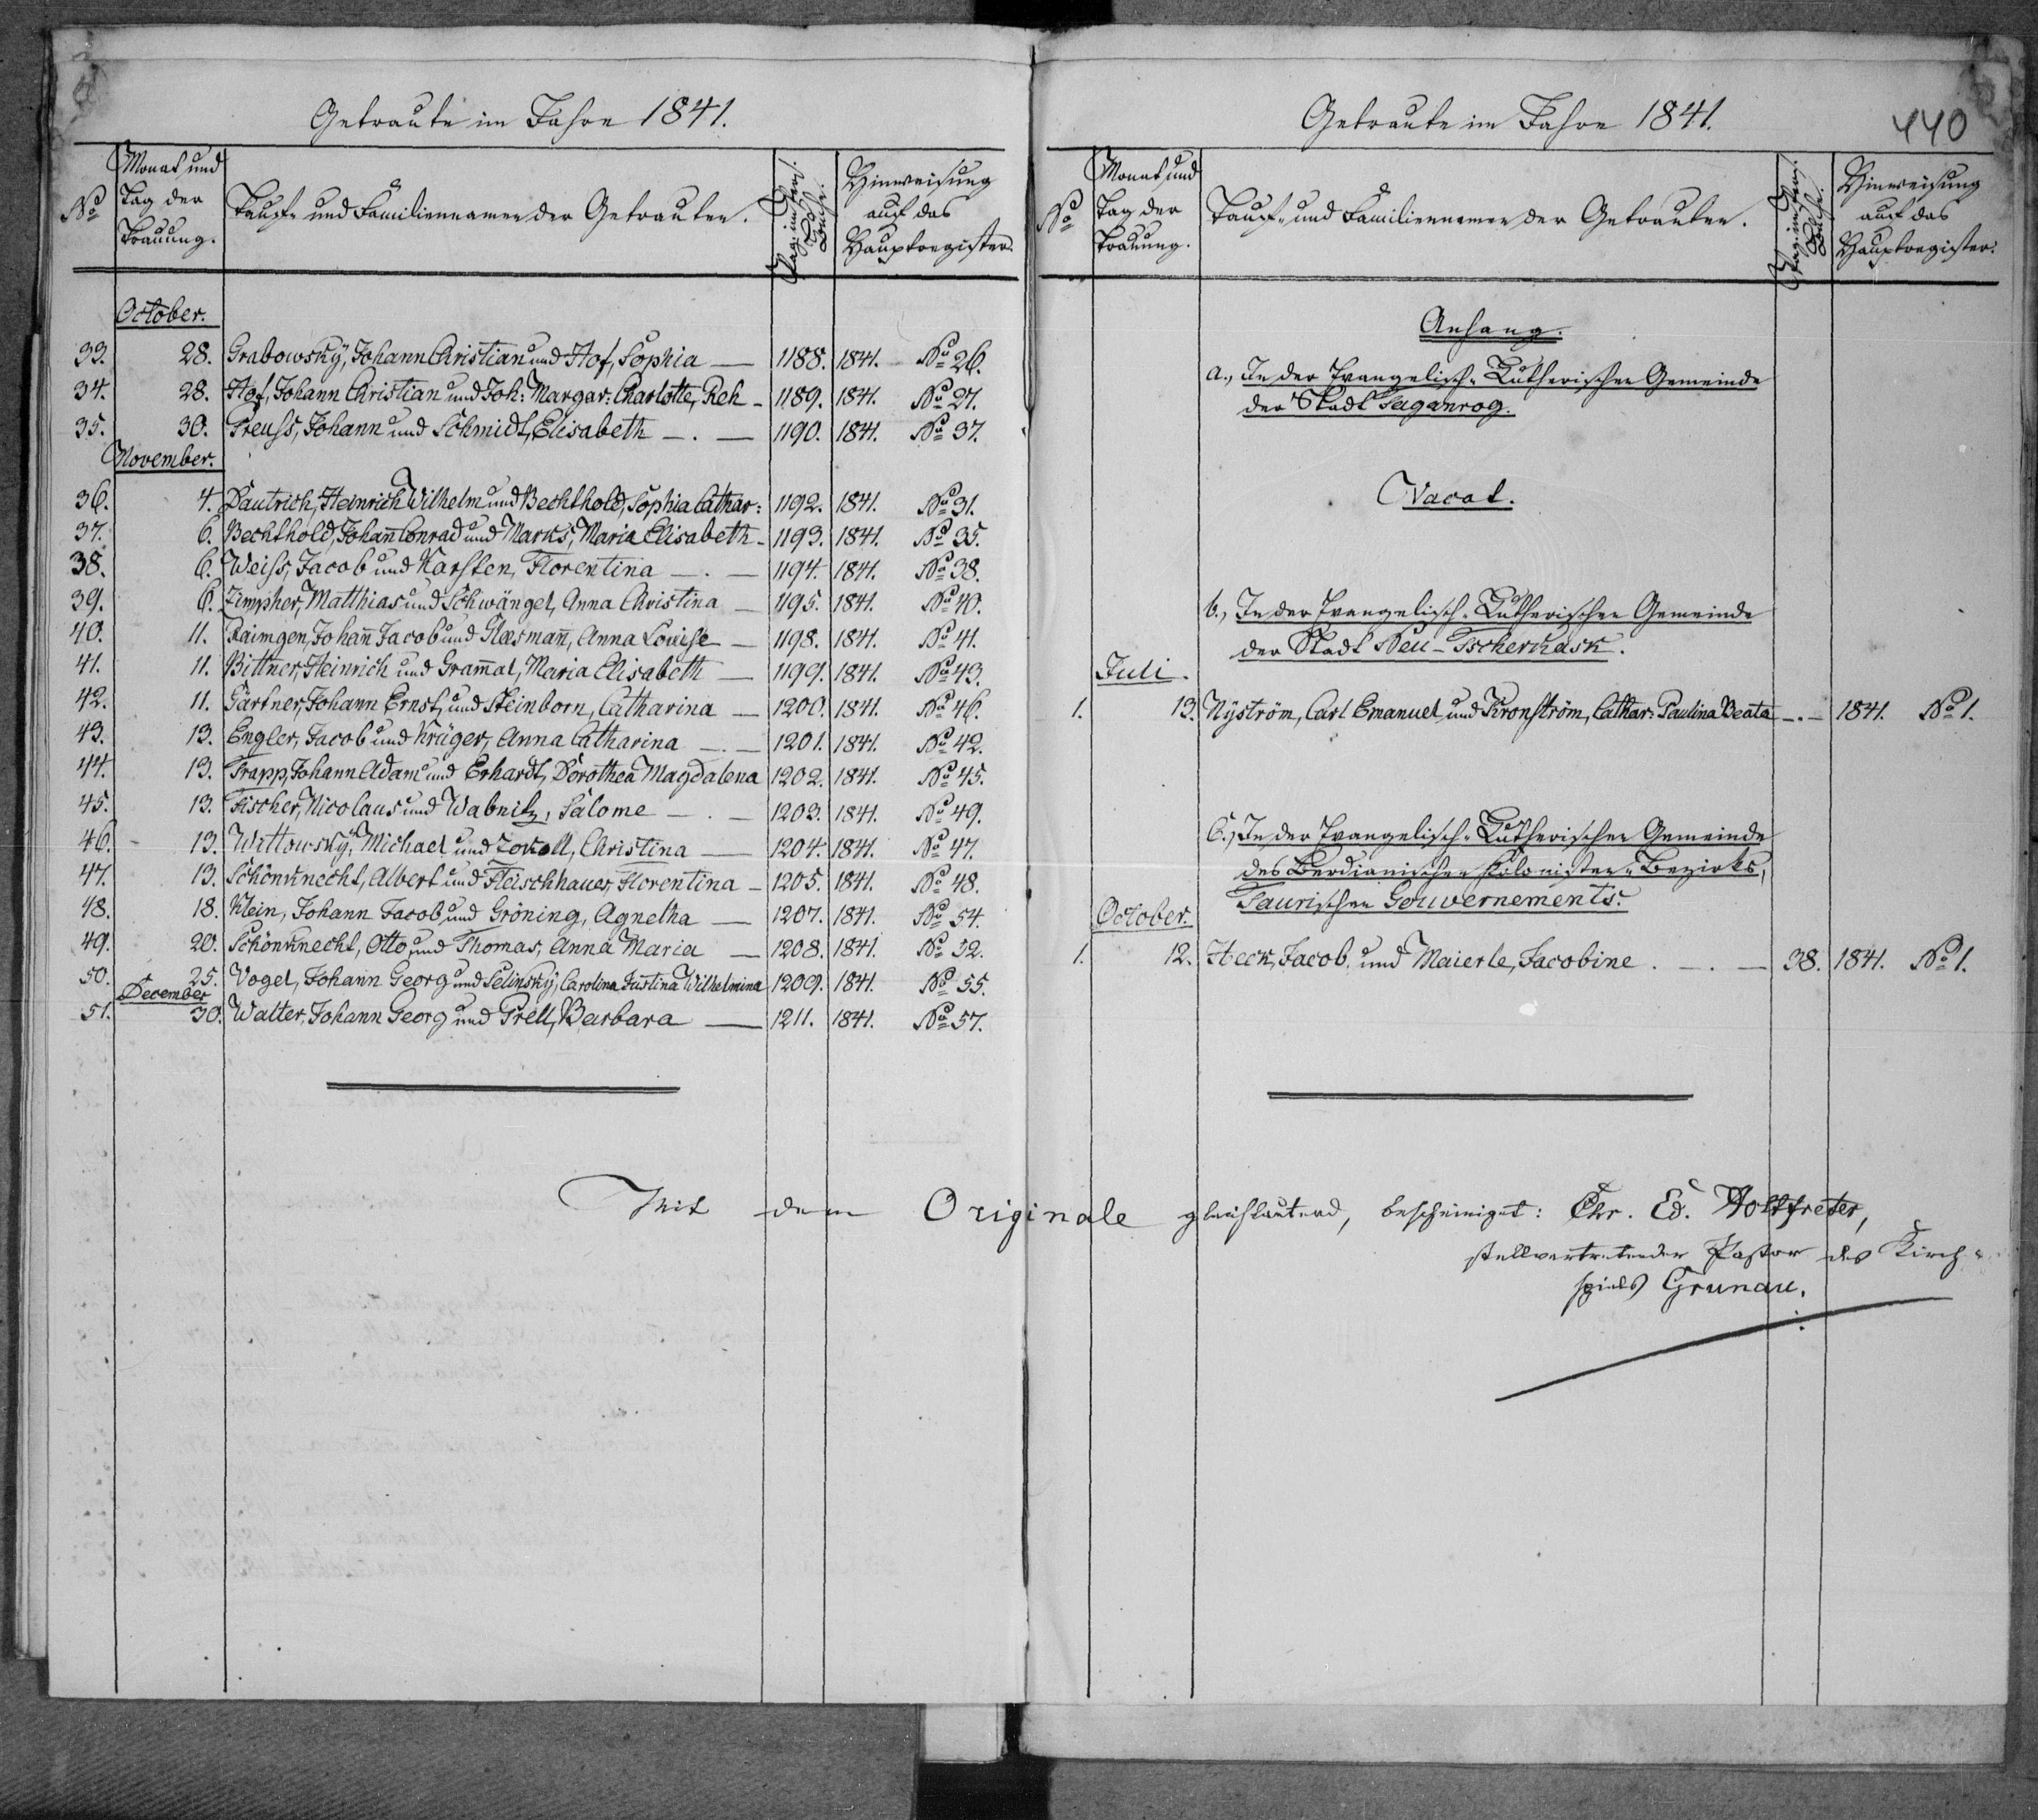 Getraute im Jahre 1841.
No
Monat und Tag der Trauung.
Tauf- und Familiennamen der Getrauten.
Pag: im Pers. Buche.
Hinweisung auf das Hauptregister.
October.
33. 28. Grabowsky, Johann Christian und Hof, Sophia — 1188. 1841. No 26.
34. 28. Hof, Johann Christian und Joh: Margar: Charlotte, Reh - 1189. 1841. No 27.
35. 30. Preuss, Johann und Schmidt, Elisabeth —.— 1190. 1841. No 37.
November.
36. 4. Dautrich, Heinrich Wilhelm und Bechthold, Sophia Cathar: 1192. 1841. No 31.
37. 6. Bechthold, Johann Conrad und Marks, Maria Elisabeth - 1193. 1841. No 35.
38. 6. Weiss, Jacob und Karsten, Florentina —.— 1194. 1841. No 38.
39. 6. Zimpher, Matthias und Schwängel, Anna Christina — 1195. 1841. No 40.
40. 11. Raimgen, Johan̄ Jacob und Glasman̄, Anna Louise — 1198. 1841. No 41.
41. 11. Bittner, Heinrich und Gram̄al, Maria Elisabeth — 1199. 1841. No 43.
42. 11. Gärtner, Johann Ernst, und Steinborn, Catharina — 1200. 1841. No 46.
43. 13. Engler, Jacob und Krüger, Anna Catharina —.— 1201. 1841. No 42.
44. 13. Trapp, Johann Adam und Erhardt, Dorothea Magdalena 1202. 1841. No 45.
45. 13. Fischer, Nicolaus und Wabnitz, Salome —.— 1203. 1841. No 49.
46. 13. Wittowsky, Michael und Zokoll, Christina — 1204. 1841. No 47.
47. 13. Schönknecht, Albert und Fleischhauer, Florentina - 1205. 1841. No 48.
48. 18. Klein, Johann Jacob und Gröning, Agnetha — 1207. 1841. No 54.
49. 20. Schönknecht, Otto und Thomas, Anna Maria — 1208. 1841. No 32.
50. 25. Vogel, Johann Georg und Selinsky, Carolina Justina Wilhelmina 1209. 1841. No 55.
December
51. 30. Walter, Johann Georg und Prell, Barbara — 1211. 1841. No 57.
Getraute im Jahre 1841.
440
No
Monat und Tag der Trauung.
Tauf- und Familiennamen der Getrauten.
Pag: im Pers. Buche.
Hinweisung auf das Hauptregister.
Anhang.
a., In der Evangelisch-Lutherischen Gemeinde
der Stadt Taganrog.
Vacat.
b., In der Evangelisch-Lutherischen Gemeinde
der Stadt Neu-Tscherkask.
Juli.
1. 13. Nyström, Carl Emanuel und Kronström, Cathar: Paulina Beata —.— 1841. No 1.
c., In der Evangelisch-Lutherischen Gemeinde
des Berdianischen Kolonisten-Bezirks,
Taurischen Gouvernements.
October.
1. 12. Heck, Jacob, und Maierle, Jacobine .—.— 38. 1841. No 1.
Mit dem Originale gleichlautend, bescheiniget: Chr. Ed. Holtfreter,
stellvertretender Pastor des Kirch-
spiels Grunau.